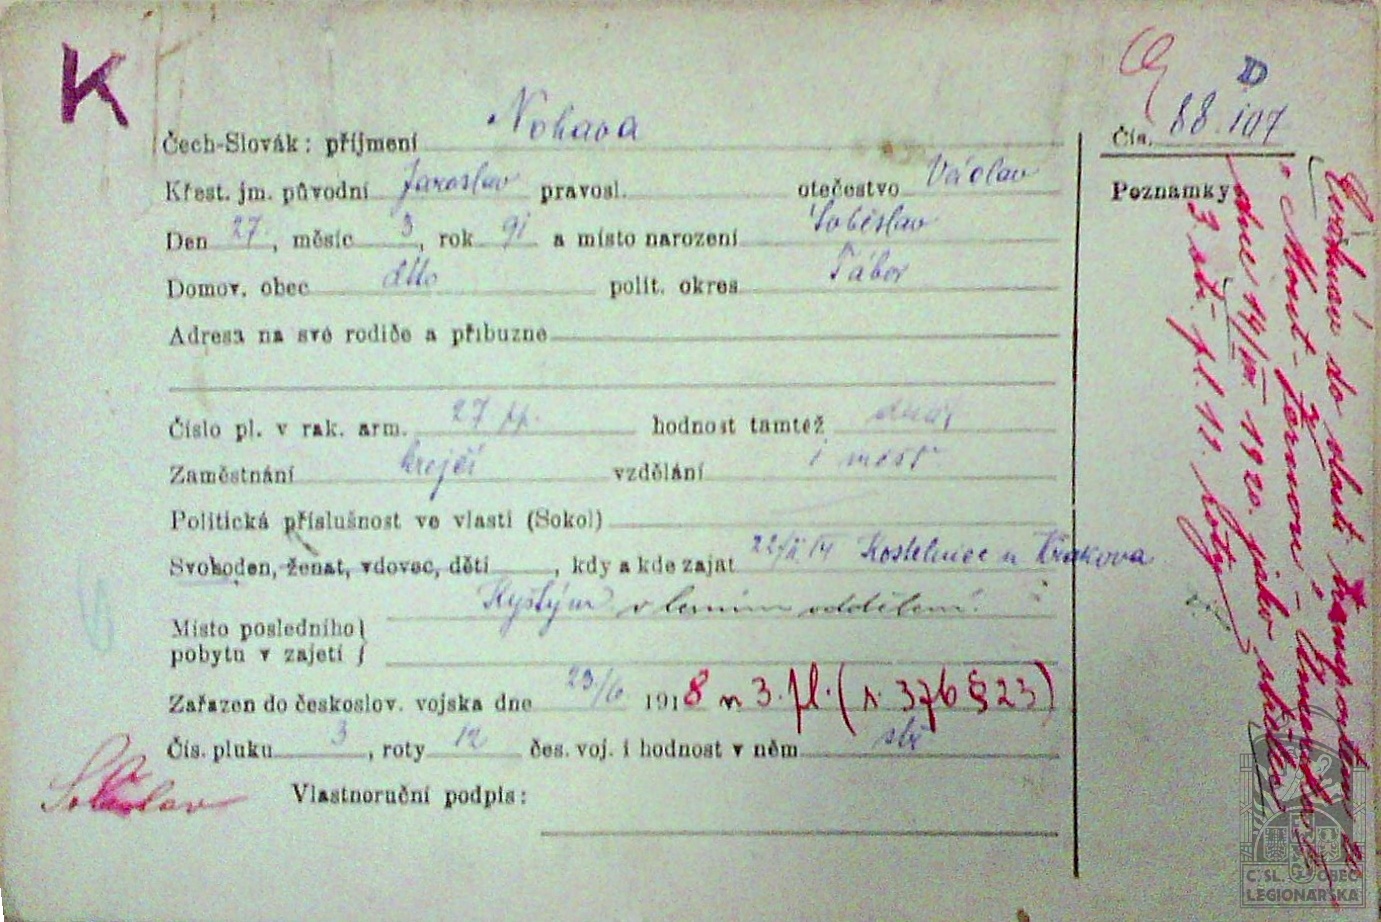 K
Čís. 88.107
Čech-Slovák: příjmení Nohava
Křest. jm. původní Jaroslav pravosl. otečestvo Václav
Den 27. , měsíc 3 , rok 91 a místo narození Soběslav
Domov. obec dtto polit. okres Tábor
Adresa na své rodiče a příbuzné
Číslo pl. v rak. arm. 27 p. hodnost tamtéž
Zaměstnání krejčí vzdělání
Politická příslušnost ve vlasti (Sokol)
Svoboden, ženat, vdovec, dětí , kdy a kde zajat Kostelniec u Krakova
Kyštým v lesním oddělení.
Místo posledního
pobytu v zajetí
Zařazen do českoslov. vojska dne 23/6. 1918 u 3. pl. (r. 376 § 23)
Čís. pluku 3 , roty 12 čes. voj. i hodnost v něm stř
Vlastnoruční podpis:
Soběslav
Poznámky
Evakuován do vlasti transportem
"Mount-Vernon"
dne 14/VIII. 1920. jako střelec
3 stř. pl. 11. roty
Č. SL. OBEC
LEGIONÁŘSKÁ